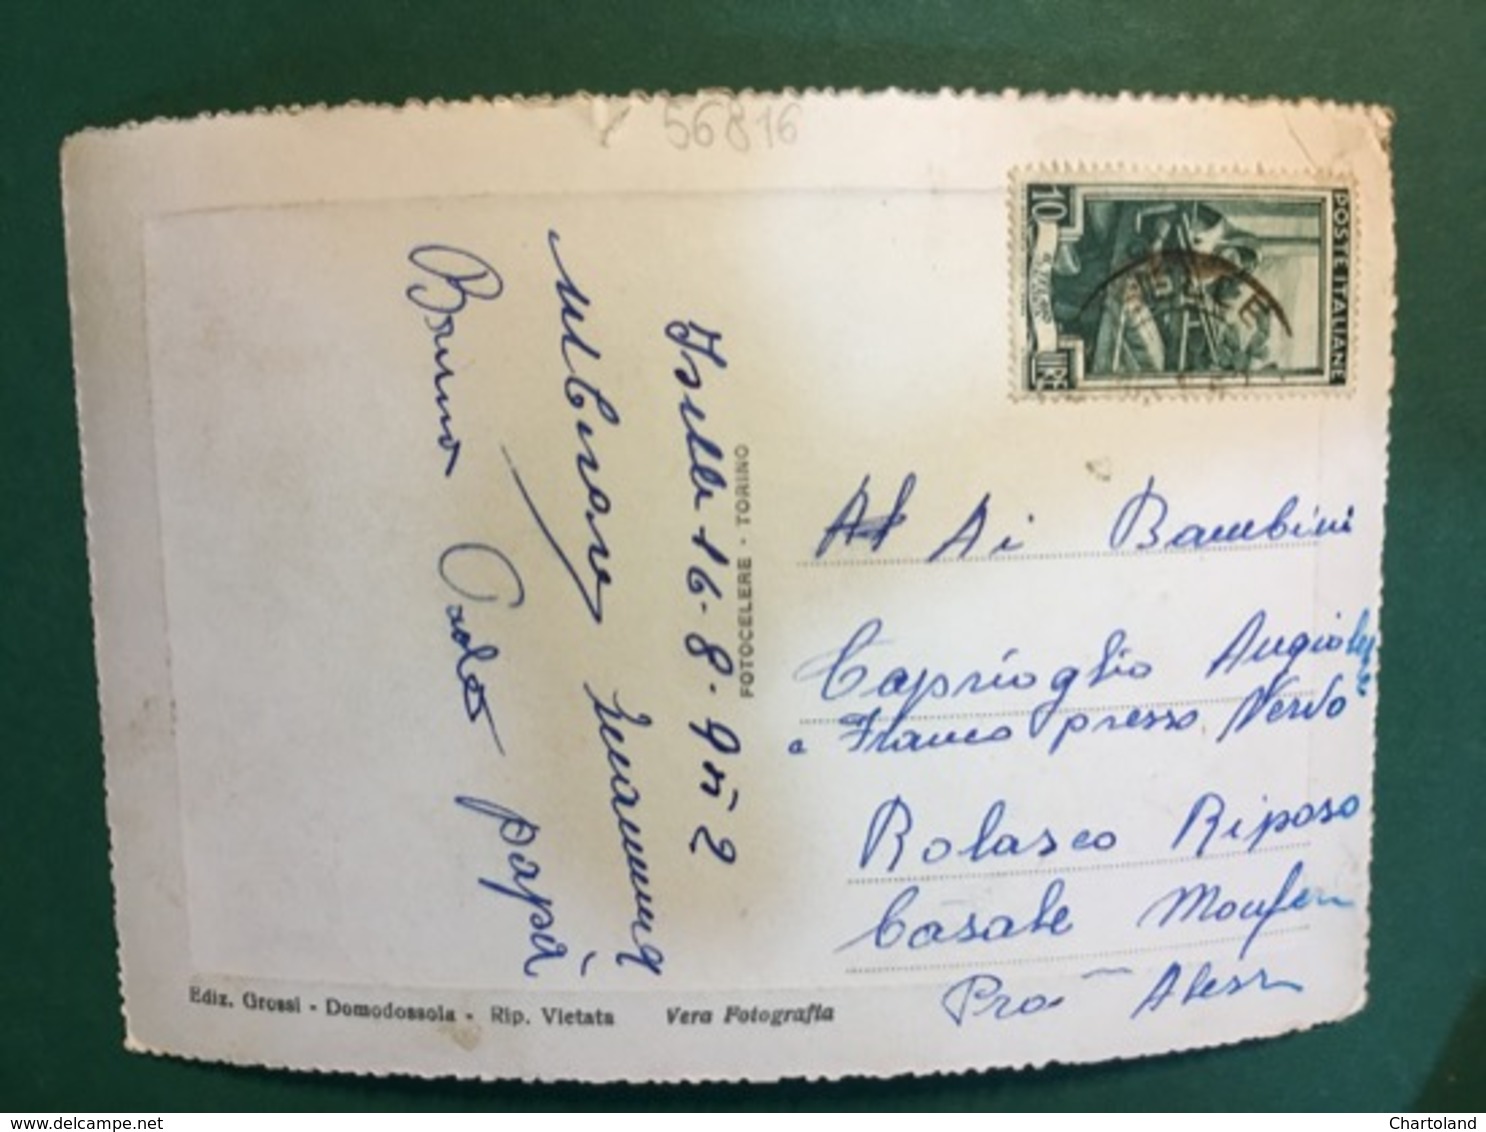 56816
POSTE ITALIANE
10
LIRE
Iselle 16-8-952
mamma
papà
FOTOCELERE - TORINO
Ai Bambini
Caprioglio Angioletta
e Franco presso Verso
Rolasco Riposo
Casale Monferr
Pro Aless
Ediz. Grossi - Domodossola - Rip. Vietata Vera Fotografia
www.delcampe.net
Chartoland